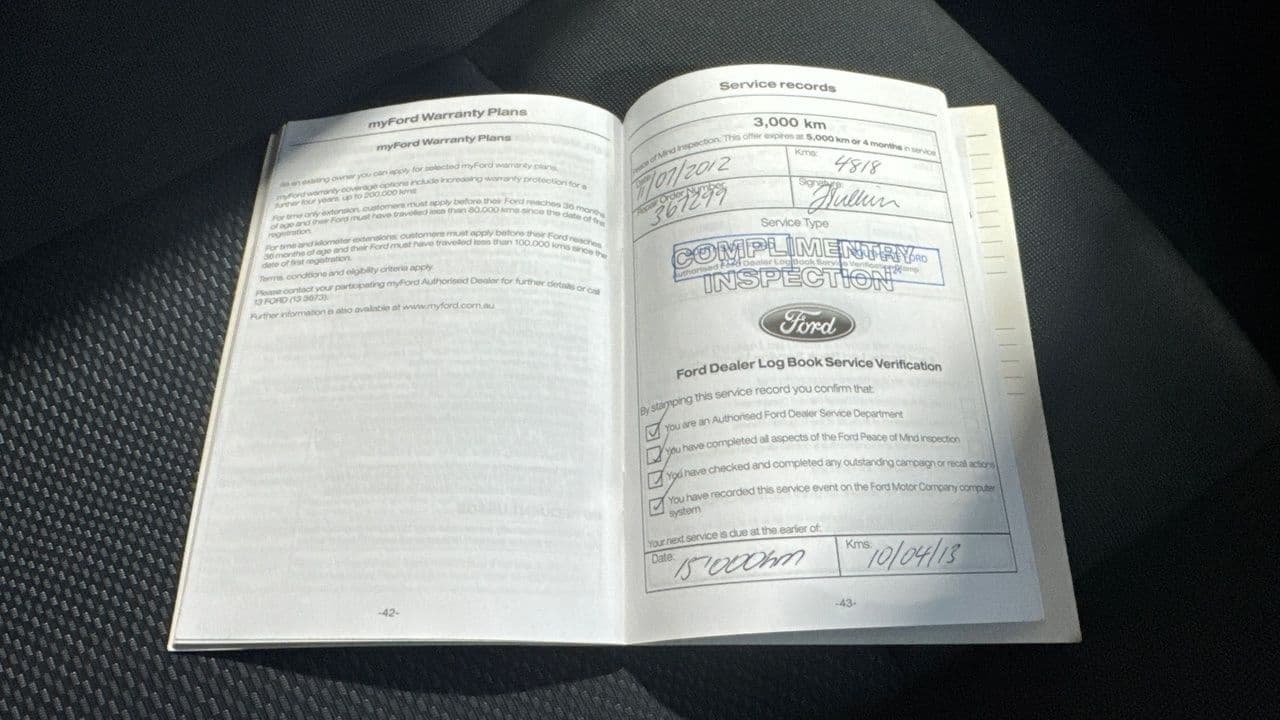 myFord Warranty Plans
myFord Warranty Plans
As an existing owner you can apply for selected myFord warranty plans.
myFord warranty coverage options include increasing warranty protection for a
further four years, up to 200,000 kms.
For time only extension, customers must apply before their Ford reaches 36 months
of age and their Ford must have travelled less than 80,000 kms since the date of first
registration.
For time and kilometer extensions, customers must apply before their Ford reaches
36 months of age and their Ford must have travelled less than 100,000 kms since the
date of first registration.
Terms, conditions and eligibility criteria apply.
Please contact your participating myFord Authorised Dealer for further details or call
13 FORD (13 3673).
Further information is also available at www.myford.com.au
-42-
Service records
3,000 km
Peace of Mind Inspection. This offer expires at 5,000 km or 4 months in service
Date:
11/07/2012
Kms:
4818
Repair Order Number
367299
Signature:
Service Type
COMPLIMENTRY
FORD
Authorised Ford Dealer Log Book Service Verification Stamp
INSPECTION
Ford
Ford Dealer Log Book Service Verification
By stamping this service record you confirm that:
You are an Authorised Ford Dealer Service Department
You have completed all aspects of the Ford Peace of Mind inspection
You have checked and completed any outstanding campaign or recall actions
You have recorded this service event on the Ford Motor Company computer
system
Your next service is due at the earlier of:
Date:
15'000km
Kms:
10/04/13
-43-